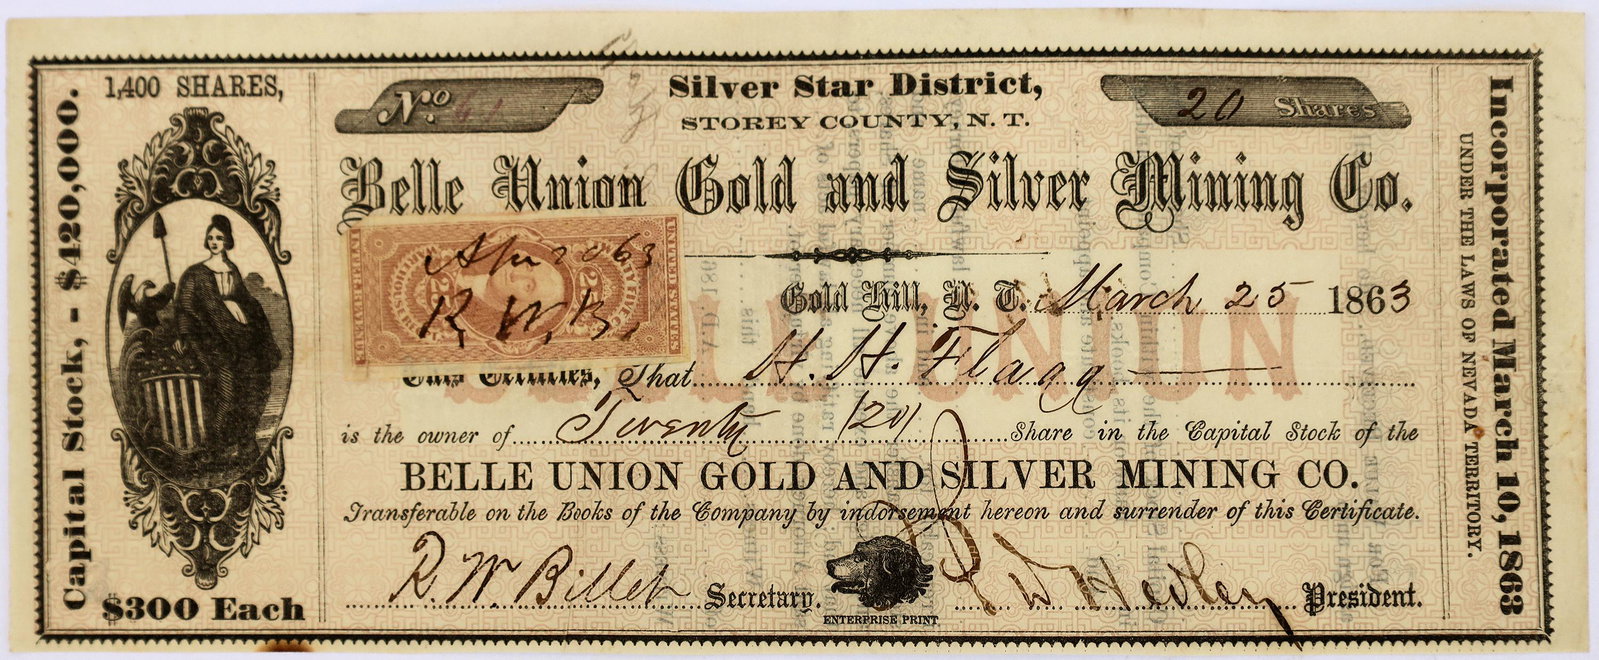 1,400 SHARES,
Capital Stock, - $420,000.
$300 Each
No.
Silver Star District,
STOREY COUNTY, N. T.
20 Shares
Belle Union Gold and Silver Mining Co.
UNITED STATES
INTER. REVENUE
25
Apr 20 63
R. W. B.
Gold Hill, N. T. March 25 1863
BELLE UNION
This Certifies, That H. H. Flagg
is the owner of Twenty (20) Share in the Capital Stock of the
BELLE UNION GOLD AND SILVER MINING CO.
Transferable on the Books of the Company by indorsement hereon and surrender of this Certificate.
R. W. Billet Secretary.
ENTERPRISE PRINT
Hedley President.
Incorporated March 10, 1863
UNDER THE LAWS OF NEVADA TERRITORY.